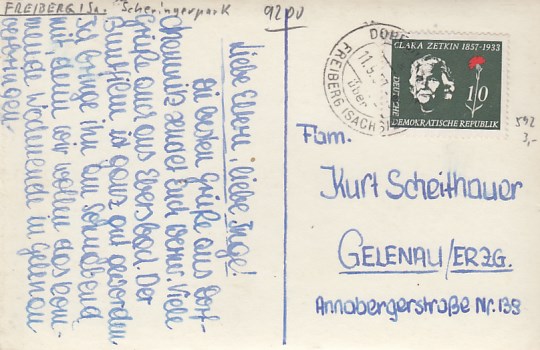 FREIBERG ISa. Scheringerpark
92 DV
Liebe Eltern, liebe Inge!
Die besten Grüße aus Dorf-
chemnitz sendet Euch Werner. Viele
Grüße auch aus Ebersbach. Der
ist ganz gut geworden
Ich bringe ihn am Sonnabend
mit denn wir wollen das kom-
mende Wochenende in Gelenau
verbringen.
DORF
11.5.
über
FREIBERG (SACHS)
CLARA ZETKIN 1857-1933
10
DEUTSCHE
DEMOKRATISCHE REPUBLIK
592
3,-
Fam.
Kurt Scheithauer
GELENAU/ERZG.
Annabergerstraße Nr. 139